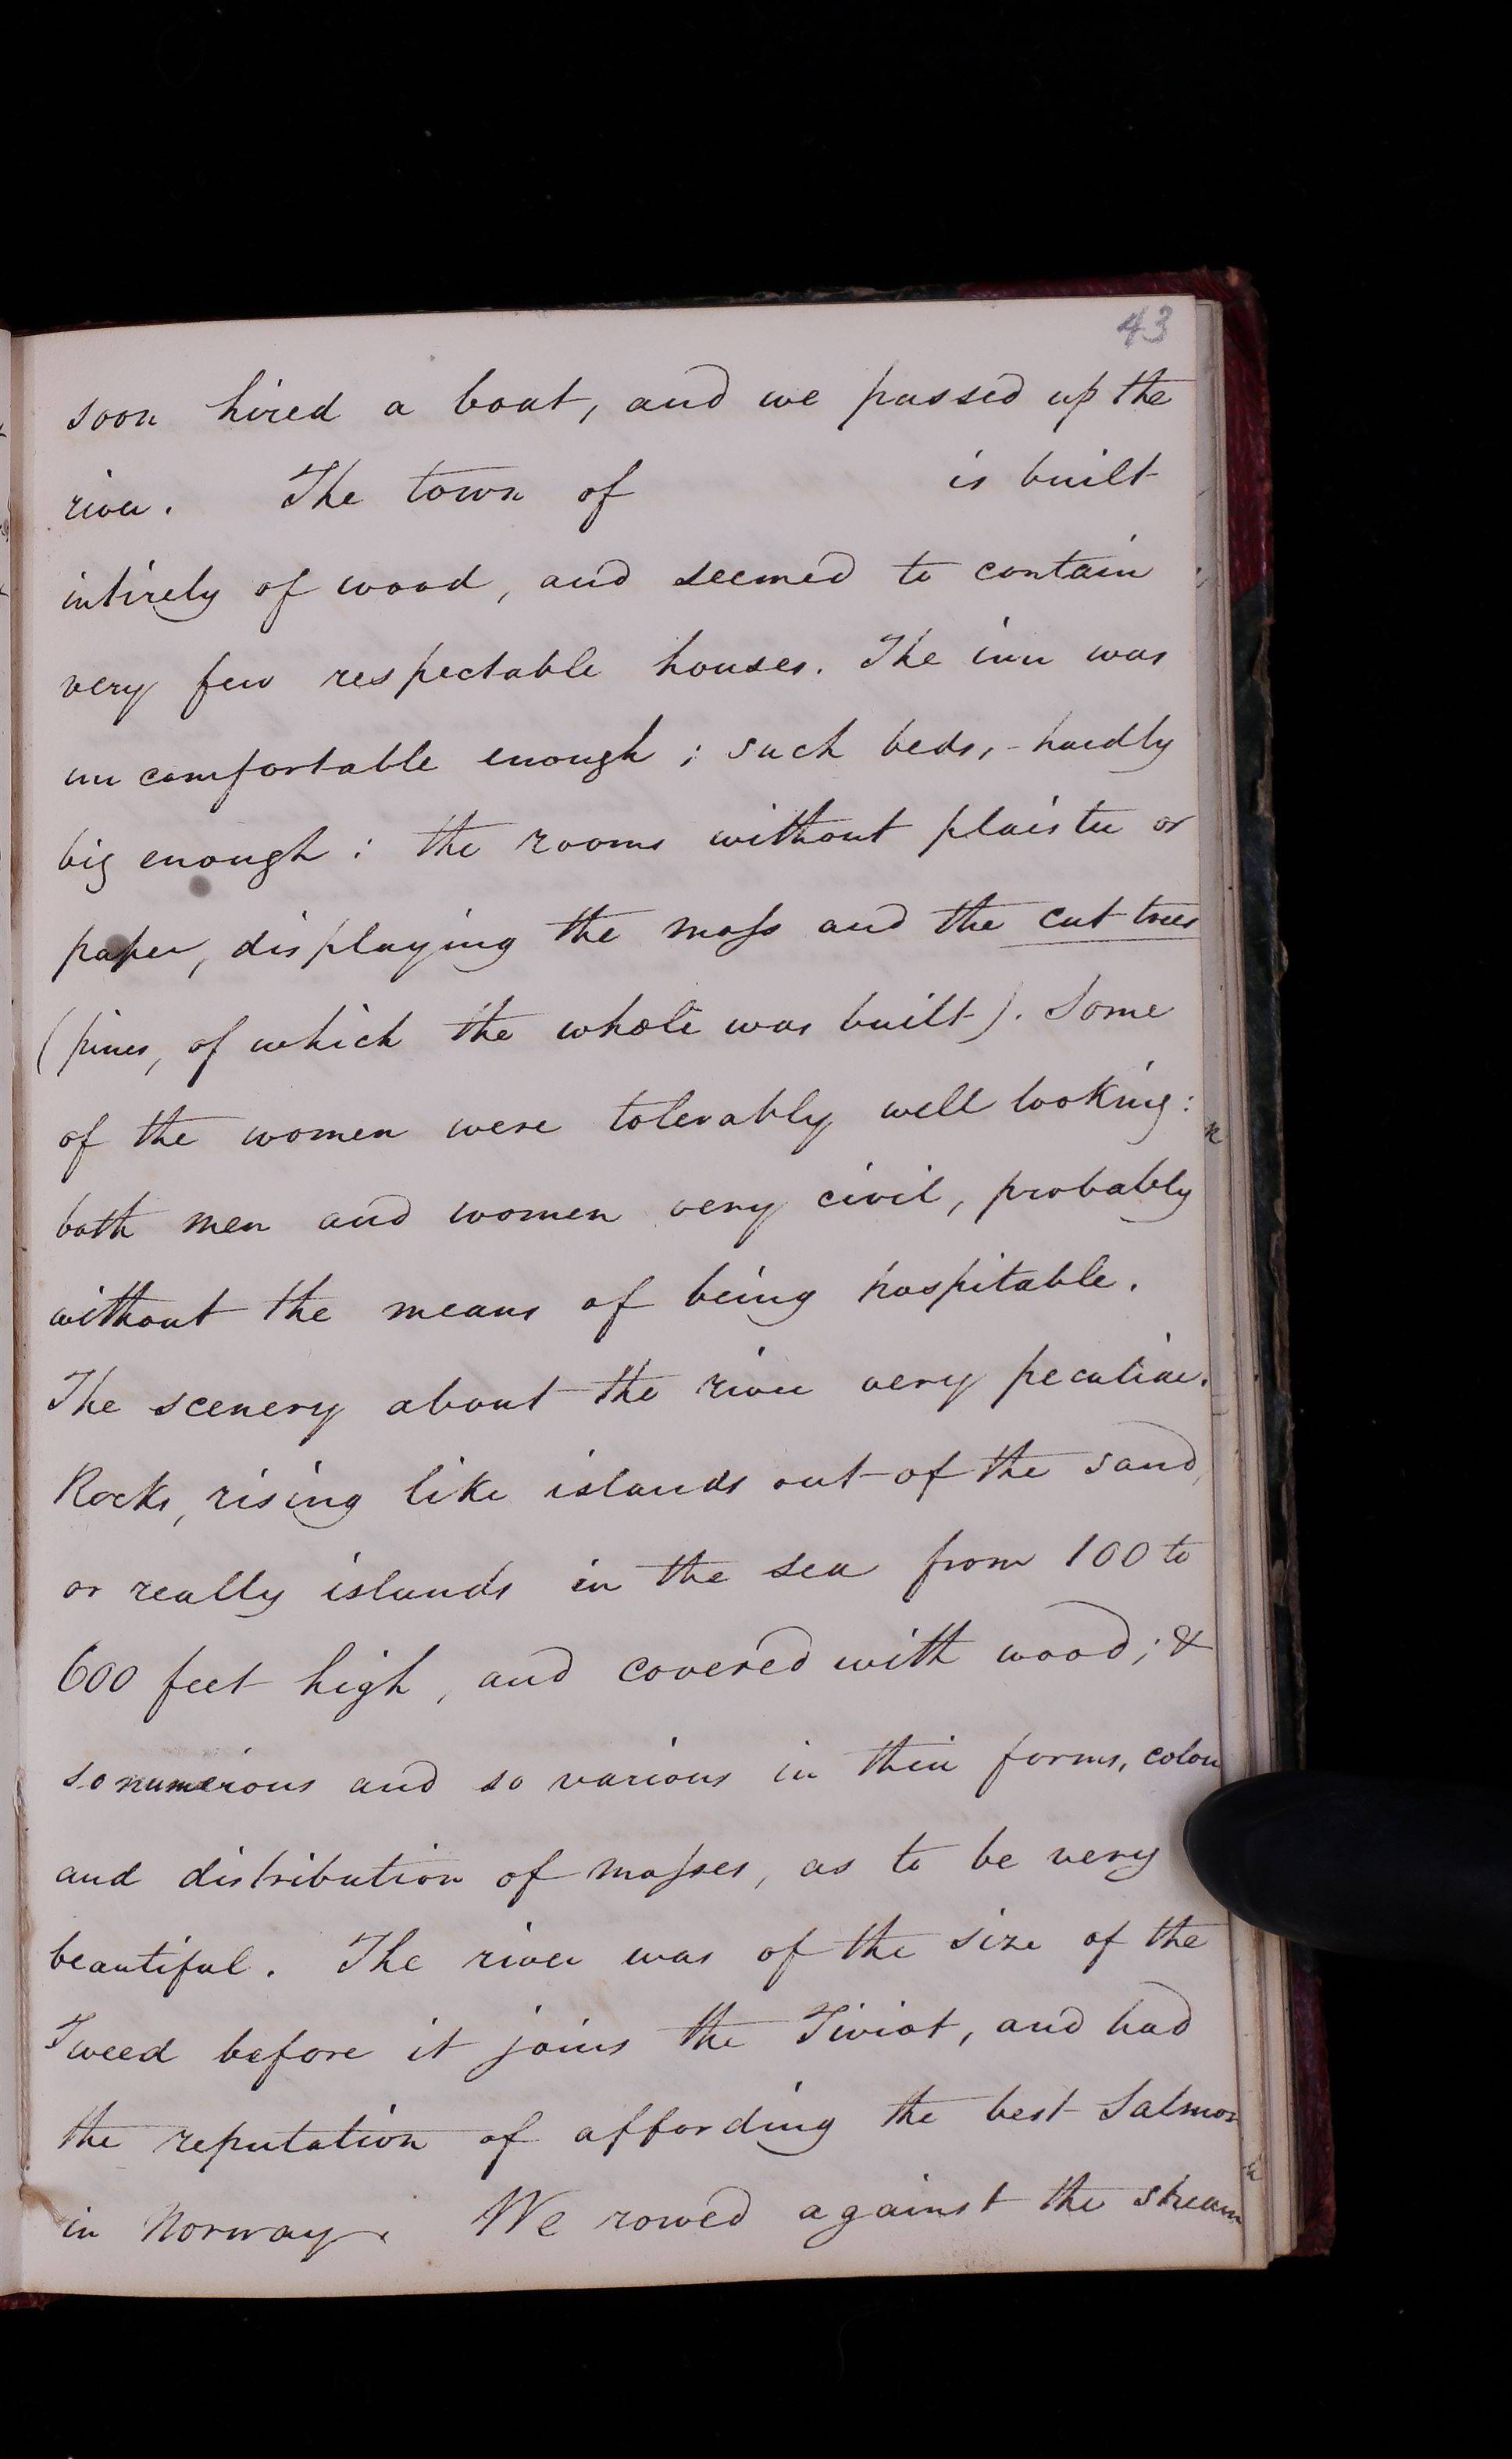 43
soon hired a boat, and we passed up the
river. The town of is built
intirely of wood, and seemed to contain
very few respectable houses. The inn was
uncomfortable enough; such beds, - hardly
big enough: the rooms without plaister or
paper, displaying the moss and the cut trees
(pines, of which the whole was built). Some
of the women were tolerably well looking:
both men and women very civil, probably
without the means of being hospitable.
The scenery about the river very peculiar.
Rocks, rising like islands out of the sand,
or really islands in the sea from 100 to
600 feet high, and covered with wood; &
so numerous and so various in their forms, colour
and distribution of masses, as to be very
beautiful. The river was of the size of the
Tweed before it joins the Tiviot, and had
the reputation of affording the best Salmon
in Norway. We rowed against the stream